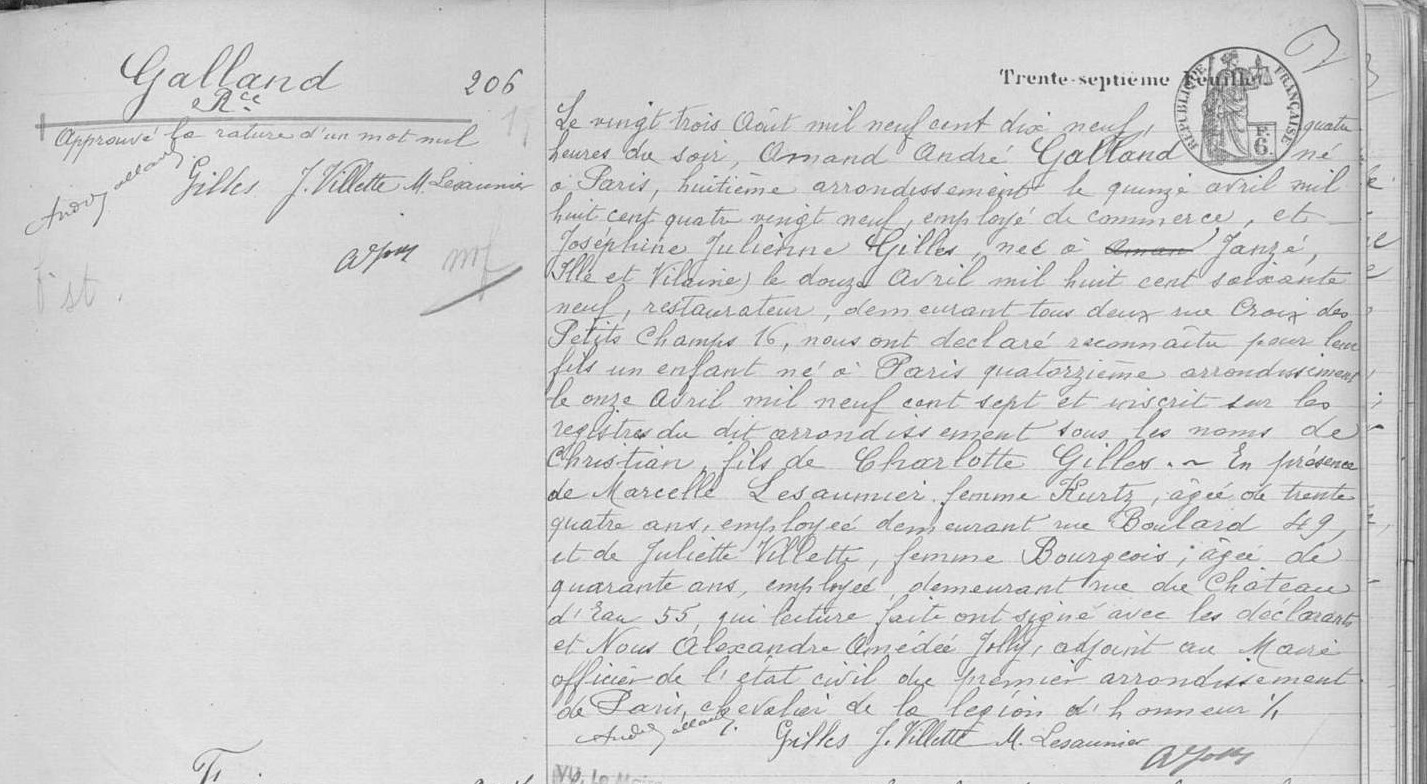 Galland
206
Rce
Approuvé la rature d'un mot nul
Gilles J. Villette M. Lesaunier
mf
Trente-septième Feuille
REPUBLIQUE FRANÇAISE
F.
6.
Le vingt trois Août mil neuf cent dix neuf, quatre
heures du soir, Amand André Galland né
à Paris, huitième arrondissement le quinze avril mil
huit cent quatre vingt neuf, employé de commerce, et
Joséphine Julienne Gilles, née à Janzé,
Ille et Vilaine) le douze Avril mil huit cent soixante
neuf, restaurateur, demeurant tous deux rue Croix des
Petits Champs 16, nous ont declaré reconnaître pour leur
fils un enfant né à Paris quatorzième arrondissement
le onze Avril mil neuf cent sept et inscrit sur les
registres du dit arrondissement sous les noms de
Christian, fils de Charlotte Gilles. ~ En présence
de Marcelle Lesaunier femme Kurtz, âgée de trente
quatre ans, employée demeurant rue Boulard 49,
et de Juliette Villette, femme Bourgeois, âgée de
quarante ans, employée, demeurant rue du Château
d'Eau 55, qui lecture faite ont signé avec les declarants
et Nous Alexandre Amédée Jolly, adjoint au Maire
officier de l'état civil du premier arrondissement
de Paris, chevalier de la légion d'honneur ./.
Gilles J. Villette M. Lesaunier
AJolly
Vu, Le Maire